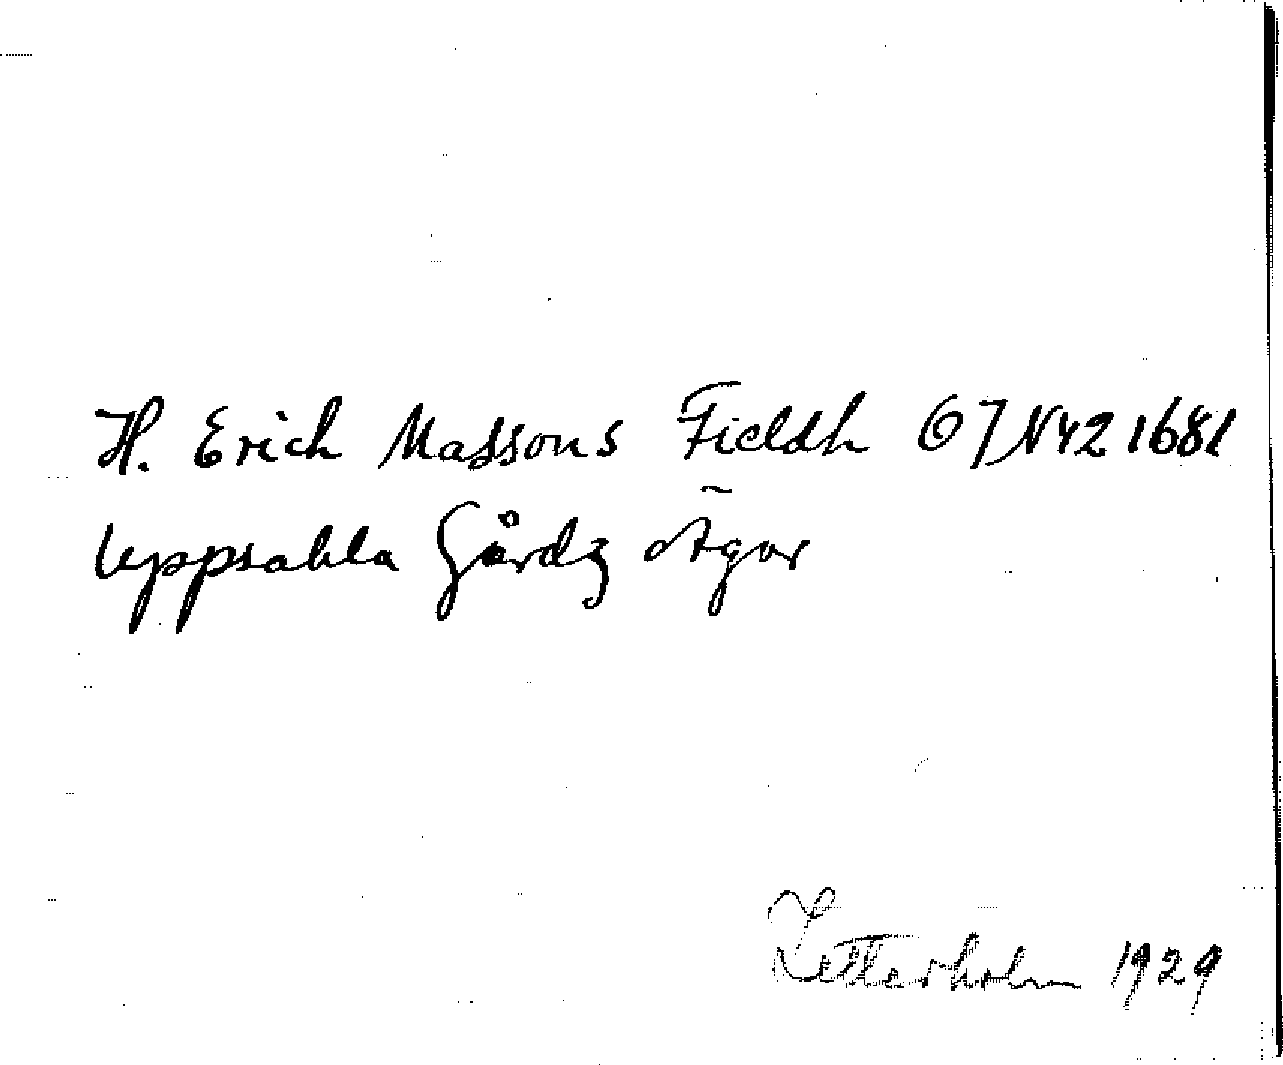 H. Erich Massons Fieldh Ö7 N42 1681
Uppsahla Gårdz Ägor
Zetterholm 1929